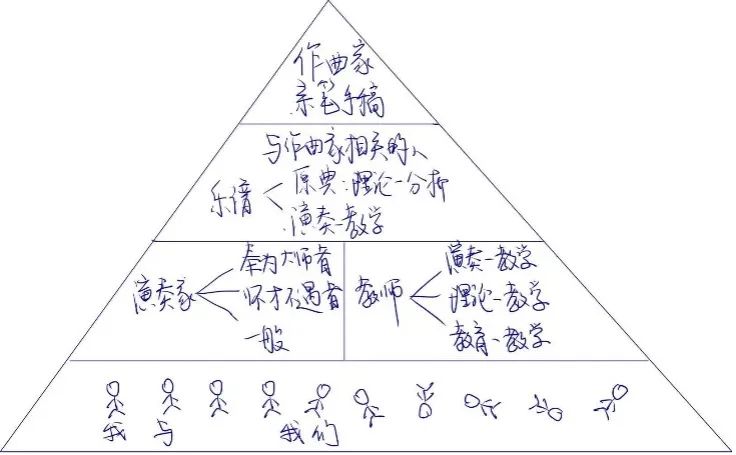 作曲家
亲笔手稿
与作曲家相关的人
乐谱
原典·理论-分析
演奏-教学
演奏家
奉为大师者
怀才不遇者
一般
教师
演奏-教学
理论-教学
教育-教学
我 与 我们